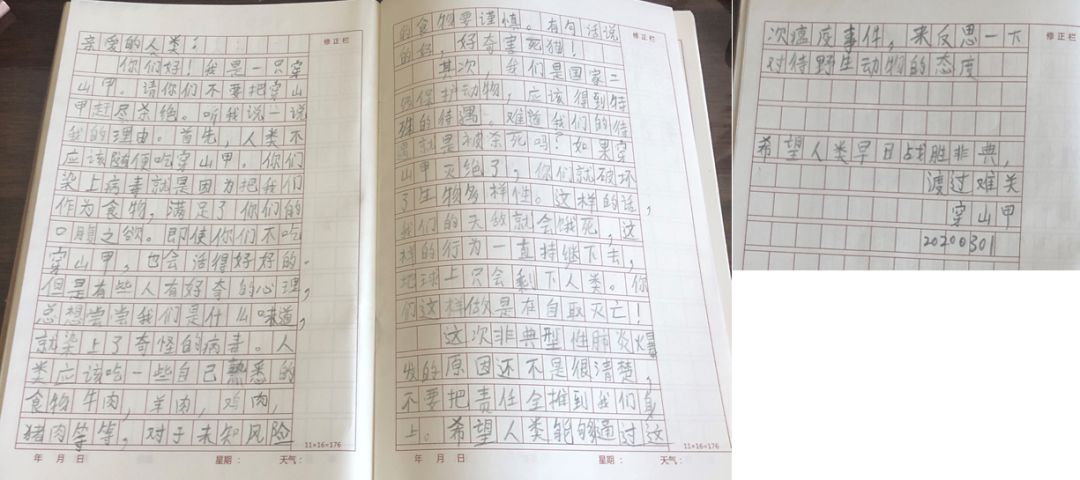 修正栏
亲爱的人类：
你们好！我是一只穿
山甲。请你们不要把穿山
甲赶尽杀绝。听我说一说
我的理由。首先，人类不
应该随便吃穿山甲。你们
染上病毒就是因为把我们
作为食物，满足了你们的
口腹之欲。即使你们不吃
穿山甲，也会活得好好的。
但是有些人有好奇的心理，
总想尝尝我们是什么味道，
就染上了奇怪的病毒。人
类应该吃一些自己熟悉的
食物牛肉，羊肉，鸡肉，
猪肉等等，对于未知风险
11×16=176
年 月 日 星期： 天气：
修正栏
的食物要谨慎。有句话说
的好，好奇害死猫！
其次，我们是国家二
级保护动物，应该得到特
殊的待遇。难道我们的待
遇就是被杀死吗？如果穿
山甲灭绝了，你们就破坏
了生物多样性。这样的话，
我们的天敌就会饿死，这
样的行为一直持继下去，
地球上只会剩下人类。你
们这样做是在自取灭亡！
这次非典型性肺炎爆
发的原因还不是很清楚，
不要把责任全推到我们身
上。希望人类能够通过这
11×16=176
年 月 日 星期： 天气：
修正栏
次瘟疫事件，来反思一下
对待野生动物的态度
希望人类早日战胜非典，
渡过难关
穿山甲
20200301